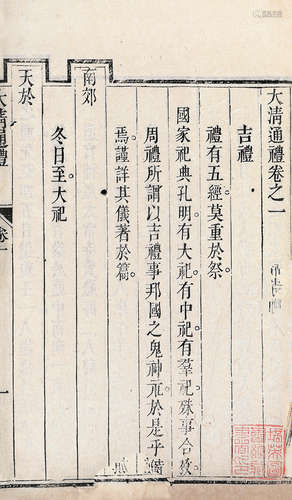 大清通禮卷之一
吉禮
禮有五經莫重於祭
國家祀典孔明有大祀有中祀有羣祀殊事合敬
周禮所謂以吉禮事邦國之鬼神示於是乎備
焉謹詳其儀著於篇
南郊
冬日至大祀
天於
大清通禮
卷一
一